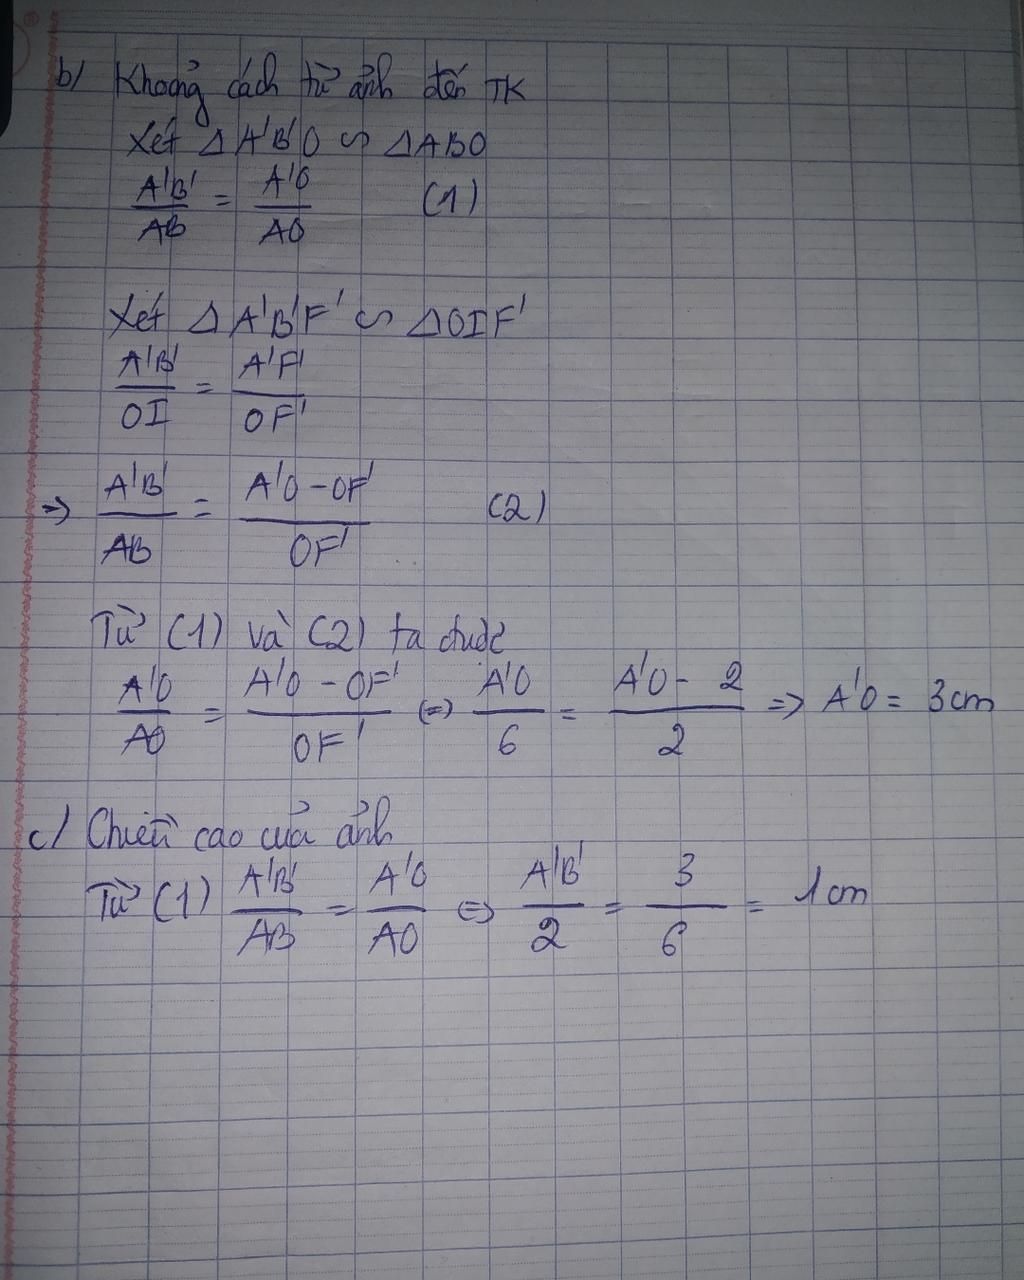 b) Khoảng cách từ ảnh đến TK
Xét Δ A'B'O ∽ ΔABO
A'B'/AB = A'O/AO (1)
Xét Δ A'B'F' ∽ ΔOIF'
A'B'/OI = A'F'/OF'
=> A'B'/AB = A'O-OF'/OF' (2)
Từ (1) và (2) ta được
A'O/AO = A'O-OF'/OF' (=) A'O/6 = A'O-2/2 => A'O = 3cm
c) Chiều cao của ảnh
Từ (1) A'B'/AB = A'O/AO <=> A'B'/2 = 3/6 = 1cm